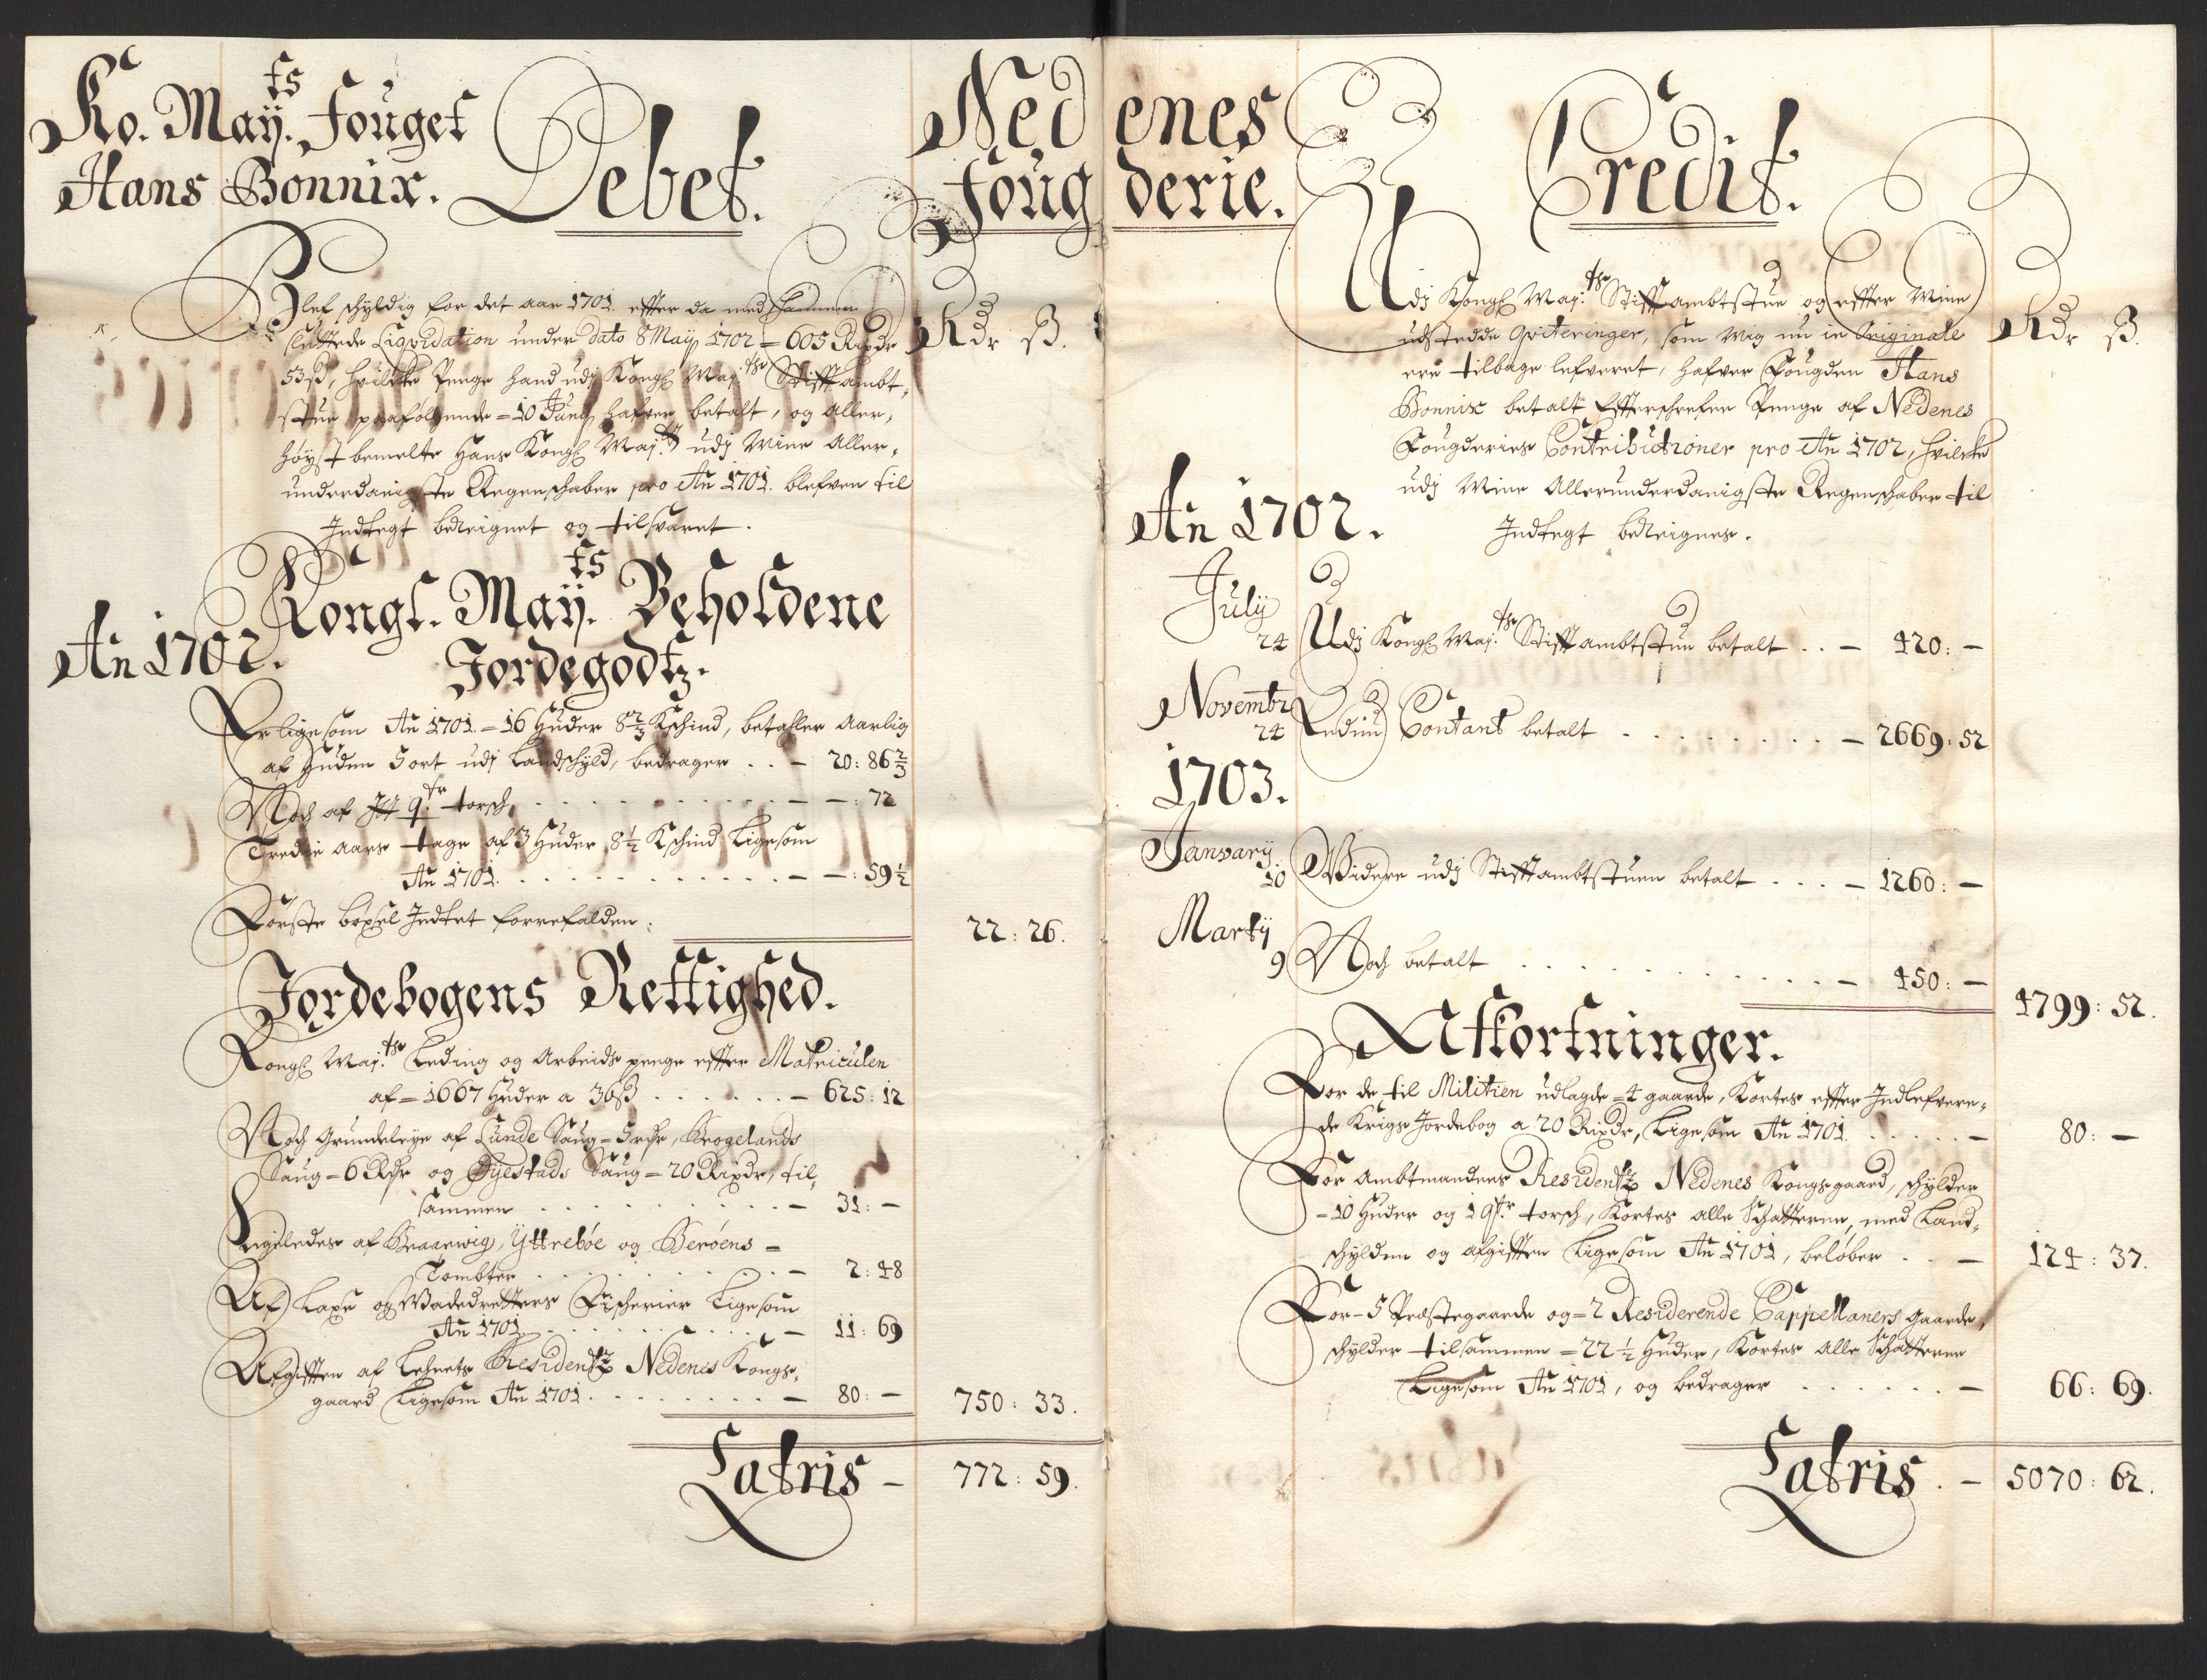 Ko. Maÿ.ts Fouget
Hans Bonnix. Debet.
Nedenes
Fougderie.
Blef schyldig for det aar 1701 effter da med hannem
sluttede Liqvidation under dato 8 Maÿ 1702 = 605 Rixdr
53 ß, hvilcke Penge hand udj Kongl May:ts Stifftambt,,
stue paafølgende = 10 Junÿ hafver betalt, og aller,,
høyst bemelte Hans Kongl May:ts udj Mine Aller,,
underdanigste Regenschaber pro An 1701. blefven til
Indtegt bereignet og tilsvaret.
Rdr ß.
An 1702.
Kongl. Maÿ.ts Beholdene
Jordegodtz.
Er ligesom An 1701 = 16 Huder 8 2/3 Kschind, betaller Aarlig
af Huden 5 ort udj Landschyld, bedrager . . — 20: 86 2/3
Noch af 9.tr torsch . . . — —: 72
Tredie Aars tage af 3 Huder 8 1/2 Kschind Ligesom
An 1701 . . . — —: 59 1/2
Første bøxel Indtet forrefalden:
22: 26.
Jordebogens Rettighed.
Kongl May:ts Leding og Arbeids penge effter Matriculen
af = 1667 Huder a 36 ß . . . — 625: 12
Noch Grundeleye af Lunde Saug = 5 rdr, Brogelands
Saug = 6 Rdr og Øyestads Saug = 20 Rixdr, til,,
sammen . . . — 31: —
Ligeledes af Braarwig, Yttrebøe og Berøens =
Tombter . . . — 2: 48
Af Laxe og Wadedretters Fischerier Ligesom
An 1701 . . . — 11: 69
Afgifften af Lehnets Residentz Nedenes Kongs,,
gaard Ligesom An 1701 . . . — 80: —
750: 33.
Latris — 772: 59.
Credit.
Udj Kongl May:ts Stifftambtstue og effter Mine
udstedde Qviteringer, som Mig nu in Originale
ere tilbage lefveret, hafver Fougden Hans
Bonnix betalt Effterschrefne Penge af Nedenes
Fougderies Contributioner pro An 1702, hvilcke
udj Mine Allerunderdanigste Regenschaber til
Indtegt bereignes.
Rdr ß.
An 1702.
Julÿ
24 Udj Kongl May:ts Stifftambtstue betalt . . — 420: —
Novembr
24 Ledien Contant betalt . . . — 2669: 52
1703.
Januarÿ
10 Widere udj Stifftambtstuen betalt . . . — 1260: —
Martÿ
9 Noch betalt . . . — 450: —
4799: 52.
Afkortninger.
For de til Militien udlagde = 4 gaarde, Kortes effter Indlefvere,,
de Krigs Jordebog a 20 Rixdr, Ligesom An 1701 . . . — 80: —
For Ambtmandens Residentz Nedenes Kongsgaard, schylder
= 10 Huder og 1 qtr torsch, Kortes alle Schatterne, med Land,,
schylden og afgifften Ligesom An 1701, beløber . . — 124: 37.
For = 5 Præstegaarde og = 2 Residerende Cappellaners gaarde,
schylder tilsammen = 22 1/2 Huder, Kortes alle Schatterne
Ligesom An 1701, og bedrager . . . — 66: 69.
Latris . — 5070: 62.